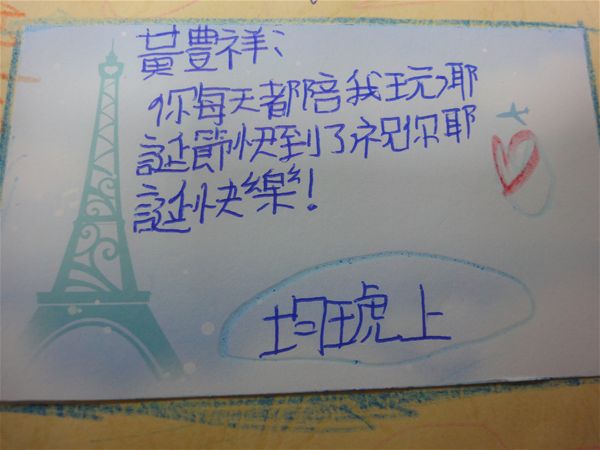 黃豐祥:
你每天都陪我玩,耶
誕節快到了祝你耶
誕快樂!
均琥上